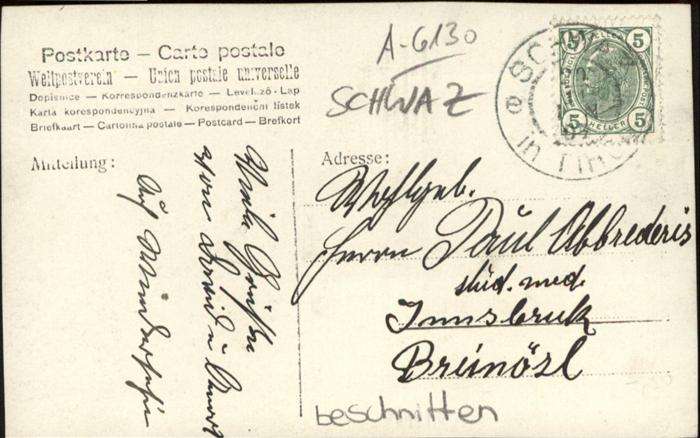 Postkarte – Carte postale
Weltpostverein – Union postale universelle
Dopisnice – Korrespondenzkarte – Levelző-Lap
Karta korespondencyjna – Korespondenční lístek
Briefkaart – Cartolina postale – Postcard – Brefkort
A-6130
SCHWAZ
5 5
5 HELLER 5
in Tirol
Mitteilung:
Viele Grüße
von
Auf Wiedersehen
Adresse:
Wohlgeb.
Herrn Paul Abbrederis
stud. med.
Innsbruck
Breinössl
beschnitten